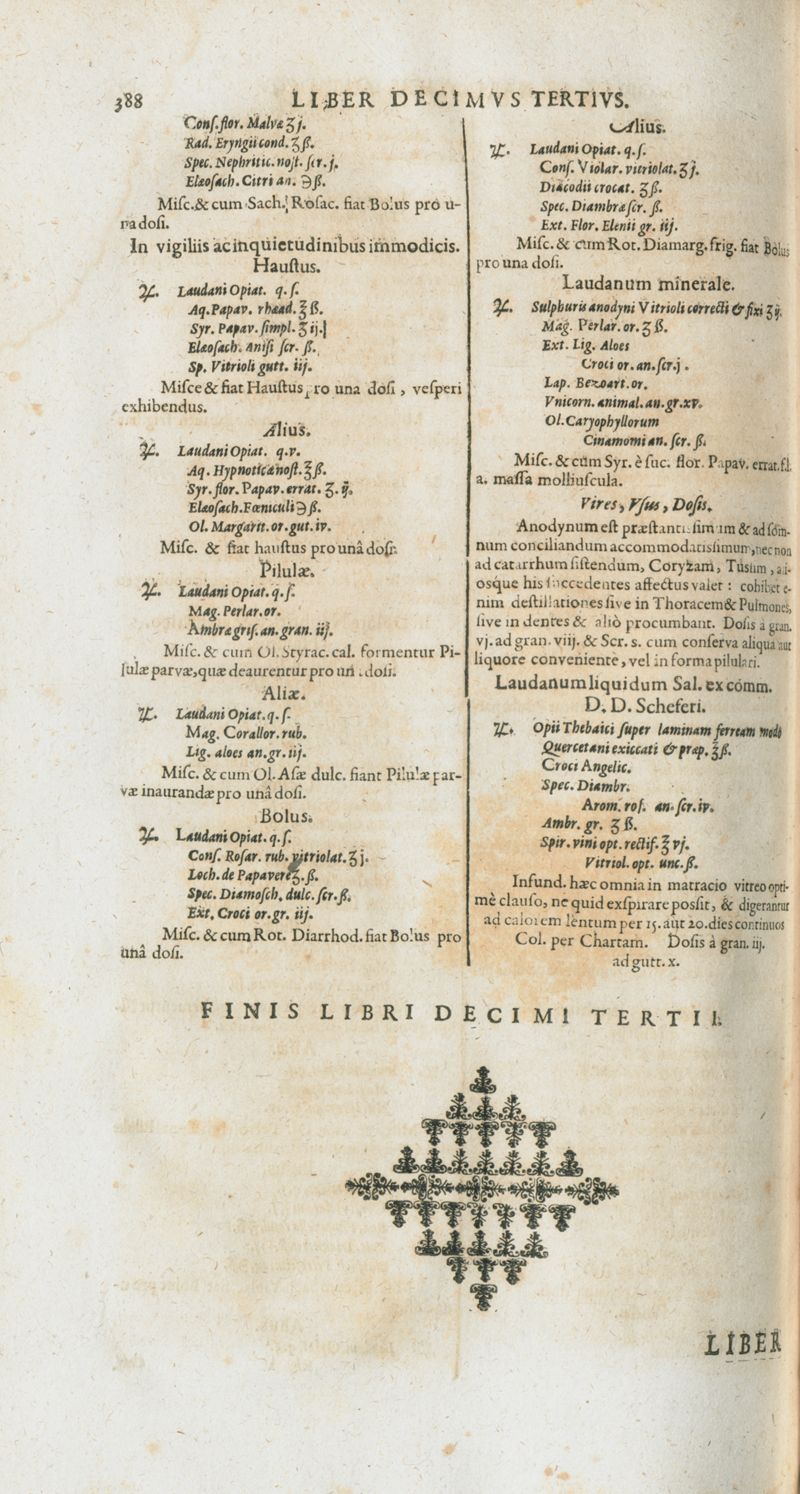 388 LIBER DECIMVS TERTIVS.
Conſ. flor. Malvæ ʒ j.
Rad. Eryngii cond. ʒ ß.
Spec. Nephritic. noſt. ſcr. j.
Elæoſach. Citri an. ℈ ß.
Miſc. & cum Sach. Roſac. fiat Bolus pro u-
na doſi.
In vigiliis ac inquietudinibus immodicis.
Hauſtus.
♃. Laudani Opiat. q. ſ.
Aq. Papav. rhœad. ℥ ß.
Syr. Papav. ſimpl. ʒ ij.
Elæoſach. Aniſi ſcr. ß.
Sp. Vitrioli gutt. iij.
Miſce & fiat Hauſtus pro una doſi, veſperi
exhibendus.
Alius.
♃. Laudani Opiat. q.v.
Aq. Hypnoticæ noſt. ℥ ß.
Syr. flor. Papav. errat. ʒ. ij.
Elæoſach. Fœniculi ℈ ß.
Ol. Margarit. or. gut. iv.
Miſc. & fiat hauſtus pro unâ doſi.
Pilulæ.
♃. Laudani Opiat. q. ſ.
Mag. Perlar. or.
Ambræ griſ. an. gran. iij.
Miſc. & cum Ol. Styrac. cal. formentur Pi-
lulæ parvæ, quæ deaurentur pro una doſi.
Aliæ.
♃. Laudani Opiat. q. ſ.
Mag. Corallor. rub.
Lig. aloes an. gr. iij.
Miſc. & cum Ol. Aſæ dulc. fiant Pilulæ par-
væ inaurandæ pro unâ doſi.
Bolus.
♃. Laudani Opiat. q. ſ.
Conſ. Roſar. rub. vitriolat. ʒ j.
Loch. de Papavere ʒ. ß.
Spec. Diamoſch. dulc. ſcr. ß.
Ext. Croci or. gr. iij.
Miſc. & cum Rot. Diarrhod. fiat Bolus pro
unâ doſi.
Alius.
♃. Laudani Opiat. q. ſ.
Conſ. Violar. vitriolat. ʒ j.
Diacodii crocat. ʒ ß.
Spec. Diambræ ſcr. ß.
Ext. Flor. Elenii gr. iij.
Miſc. & cum Rot. Diamarg. frig. fiat Bolus
pro una doſi.
Laudanum minerale.
♃. Sulphuris anodyni Vitrioli correcti & fixi ʒ ij.
Mag. Perlar. or. ʒ ß.
Ext. Lig. Aloes
Croci or. an. ſcr. j.
Lap. Bezoart. or.
Vnicorn. animal. an. gr. xv.
Ol. Caryophyllorum
Cinamomi an. ſcr. ß.
Miſc. & cum Syr. è ſuc. flor. Papav. errat. f. l.
a. maſſa molliuſcula.
Vires, Vſus, Doſis.
Anodynum eſt præſtantiſſimum & ad ſom-
num conciliandum accommodatiſſimum, nec non
ad catarrhum ſiſtendum, Coryzam, Tuſſim, ali-
osque his ſuccedentes affectus valet: cohibet e-
nim deſtillationes ſive in Thoracem & Pulmones,
ſive in dentes & aliò procumbant. Doſis à gran.
vj. ad gran. viij. & Scr. s. cum conſerva aliqua aut
liquore conveniente, vel in forma pilulari.
Laudanum liquidum Sal. ex comm.
D. D. Scheferi.
♃. Opii Thebaici ſuper laminam ferream modo
Quercetani exiccati & præp. ℥ ß.
Croci Angelic.
Spec. Diambr.
Arom. roſ. an. ſcr. iv.
Ambr. gr. ʒ ß.
Spir. vini opt. rectif. ℥ vj.
Vitriol. opt. unc. ß.
Infund. hæc omnia in matracio vitreo opti-
mè clauſo, ne quid exſpirare poſſit, & digerantur
ad calorem lentum per 15. aut 20. dies continuos
Col. per Chartam. Doſis à gran. iij.
ad gutt. x.
FINIS LIBRI DECIMI TERTII.
LIBER